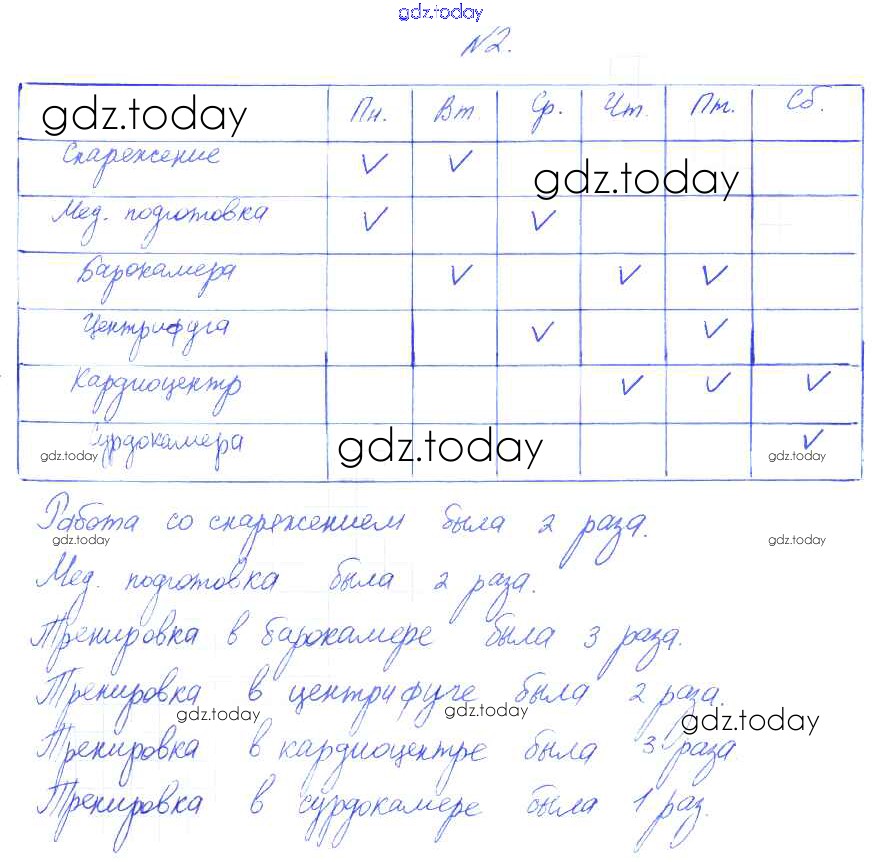 gdz.today
№2.
gdz.today Пн. Вт. Ср. Чт. Пт. Сб.
Снаряжение ✓ ✓
gdz.today
Мед. подготовка ✓ ✓
Барокамера ✓ ✓ ✓
Центрифуга ✓ ✓
Кардиоцентр ✓ ✓ ✓
Сурдокамера ✓
gdz.today gdz.today gdz.today
Работа со снаряжением была 2 раза.
gdz.today gdz.today
Мед. подготовка была 2 раза.
Тренировка в барокамере была 3 раза.
Тренировка в центрифуге была 2 раза.
gdz.today gdz.today gdz.today
Тренировка в кардиоцентре была 3 раза
Тренировка в сурдокамере была 1 раз.